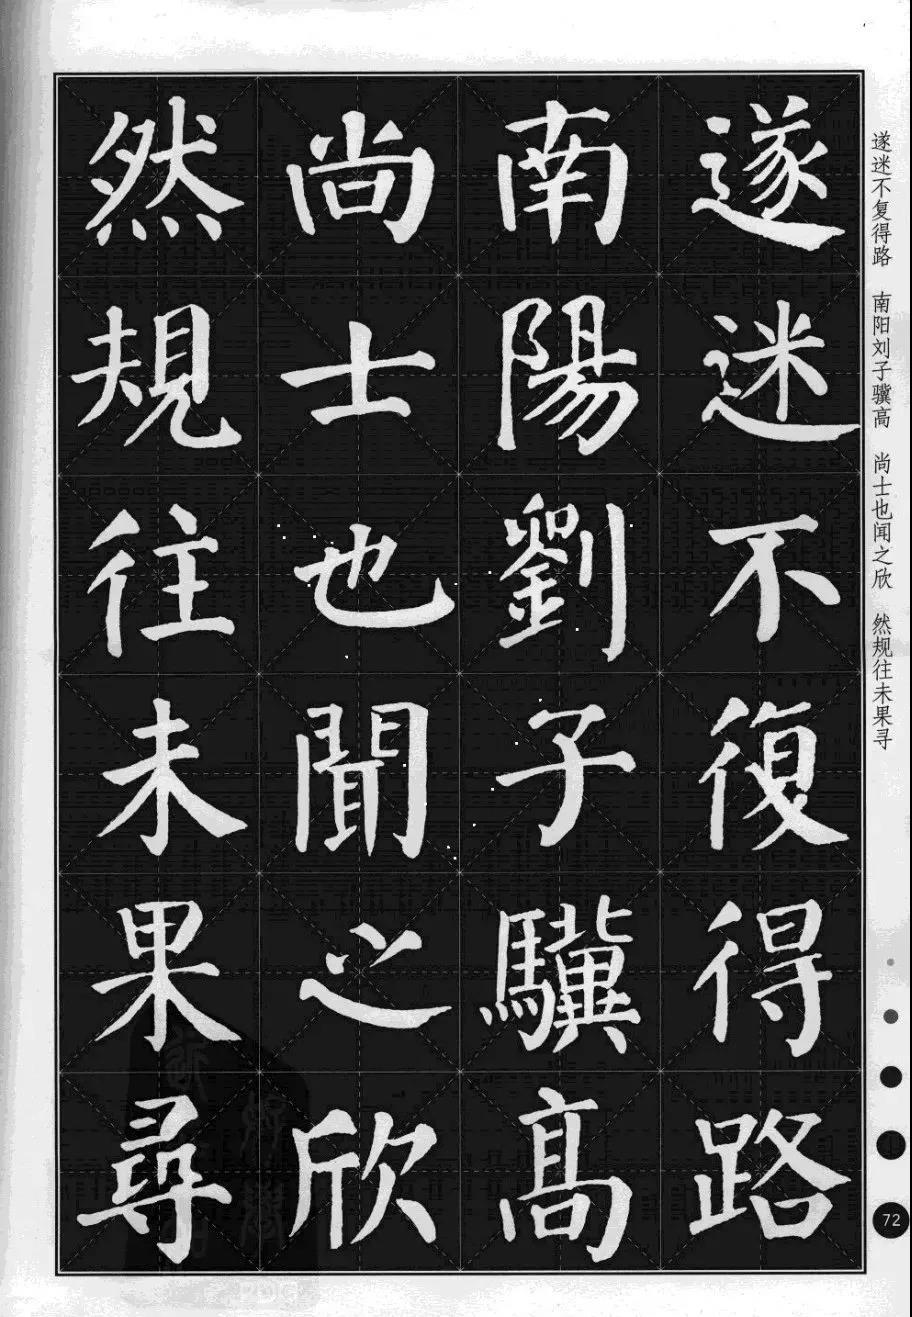 遂迷不復得路
南陽劉子驥髙
尚士也聞之欣
然規往未果尋
遂迷不复得路 南阳刘子骥高 尚士也闻之欣 然规往未果寻
72